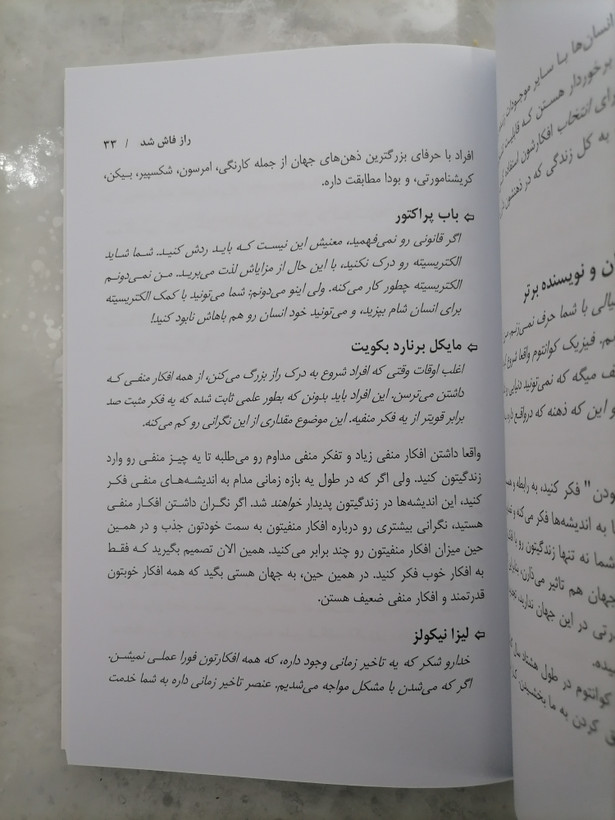 راز فاش شد / ۳۳
افراد با حرفای بزرگترین ذهن‌های جهان از جمله کارنگی، امرسون، شکسپیر، بیکن،
کریشنامورتی، و بودا مطابقت داره.
باب پراکتور
اگر قانونی رو نمی‌فهمید، معنیش این نیست که باید ردش کنید. شما شاید
الکتریسیته رو درک نکنید، با این حال از مزایاش لذت می‌برید. من نمی‌دونم
الکتریسیته چطور کار می‌کنه. ولی اینو می‌دونم: شما می‌تونید با کمک الکتریسیته
برای انسان شام بپزید، و می‌تونید خود انسان رو هم باهاش نابود کنید!
مایکل برنارد بکویت
اغلب اوقات وقتی که افراد شروع به درک راز بزرگ می‌کنن، از همه افکار منفی که
داشتن می‌ترسن. این افراد باید بدونن که بطور علمی ثابت شده که یه فکر مثبت صد
برابر قویتر از یه فکر منفیه. این موضوع مقداری از این نگرانی رو کم می‌کنه.
واقعا داشتن افکار منفی زیاد و تفکر منفی مداوم رو می‌طلبه تا یه چیز منفی رو وارد
زندگیتون کنید. ولی اگر که در طول یه بازه زمانی مدام به اندیشه‌های منفی فکر
کنید، این اندیشه‌ها در زندگیتون پدیدار خواهند شد. اگر نگران داشتن افکار منفی
هستید، نگرانی بیشتری رو درباره افکار منفیتون به سمت خودتون جذب و در همین
حین میزان افکار منفیتون رو چند برابر می‌کنید. همین الان تصمیم بگیرید که فقط
به افکار خوب فکر کنید. در همین حین، به جهان هستی بگید که همه افکار خوبتون
قدرتمند و افکار منفی ضعیف هستن.
لیزا نیکولز
خدارو شکر که یه تاخیر زمانی وجود داره، که همه افکارتون فورا عملی نمیشن.
اگر که می‌شدن با مشکل مواجه می‌شدیم. عنصر تاخیر زمانی داره به شما خدمت
انسان‌ها با سایر موجودات
برخوردار هستن که قابلیت
برای انتخاب افکارشون استفاده
به کل زندگی که در ذهنتون
و نویسنده برتر
با شما حرف نمی‌زنم
فیزیک کوانتوم واقعا شروع
میگه که نمی‌تونید دنیایی
و این که ذهنه که درواقع
فکر کنید، به رابطه و
به اندیشه‌ها فکر می‌کنه و
شما نه تنها زندگیتون رو با
جهان هم تاثیر می‌ذارن،
در این جهان ندارید،
کوانتوم در طول هشتاد سال
کردن به ما بخشیدن